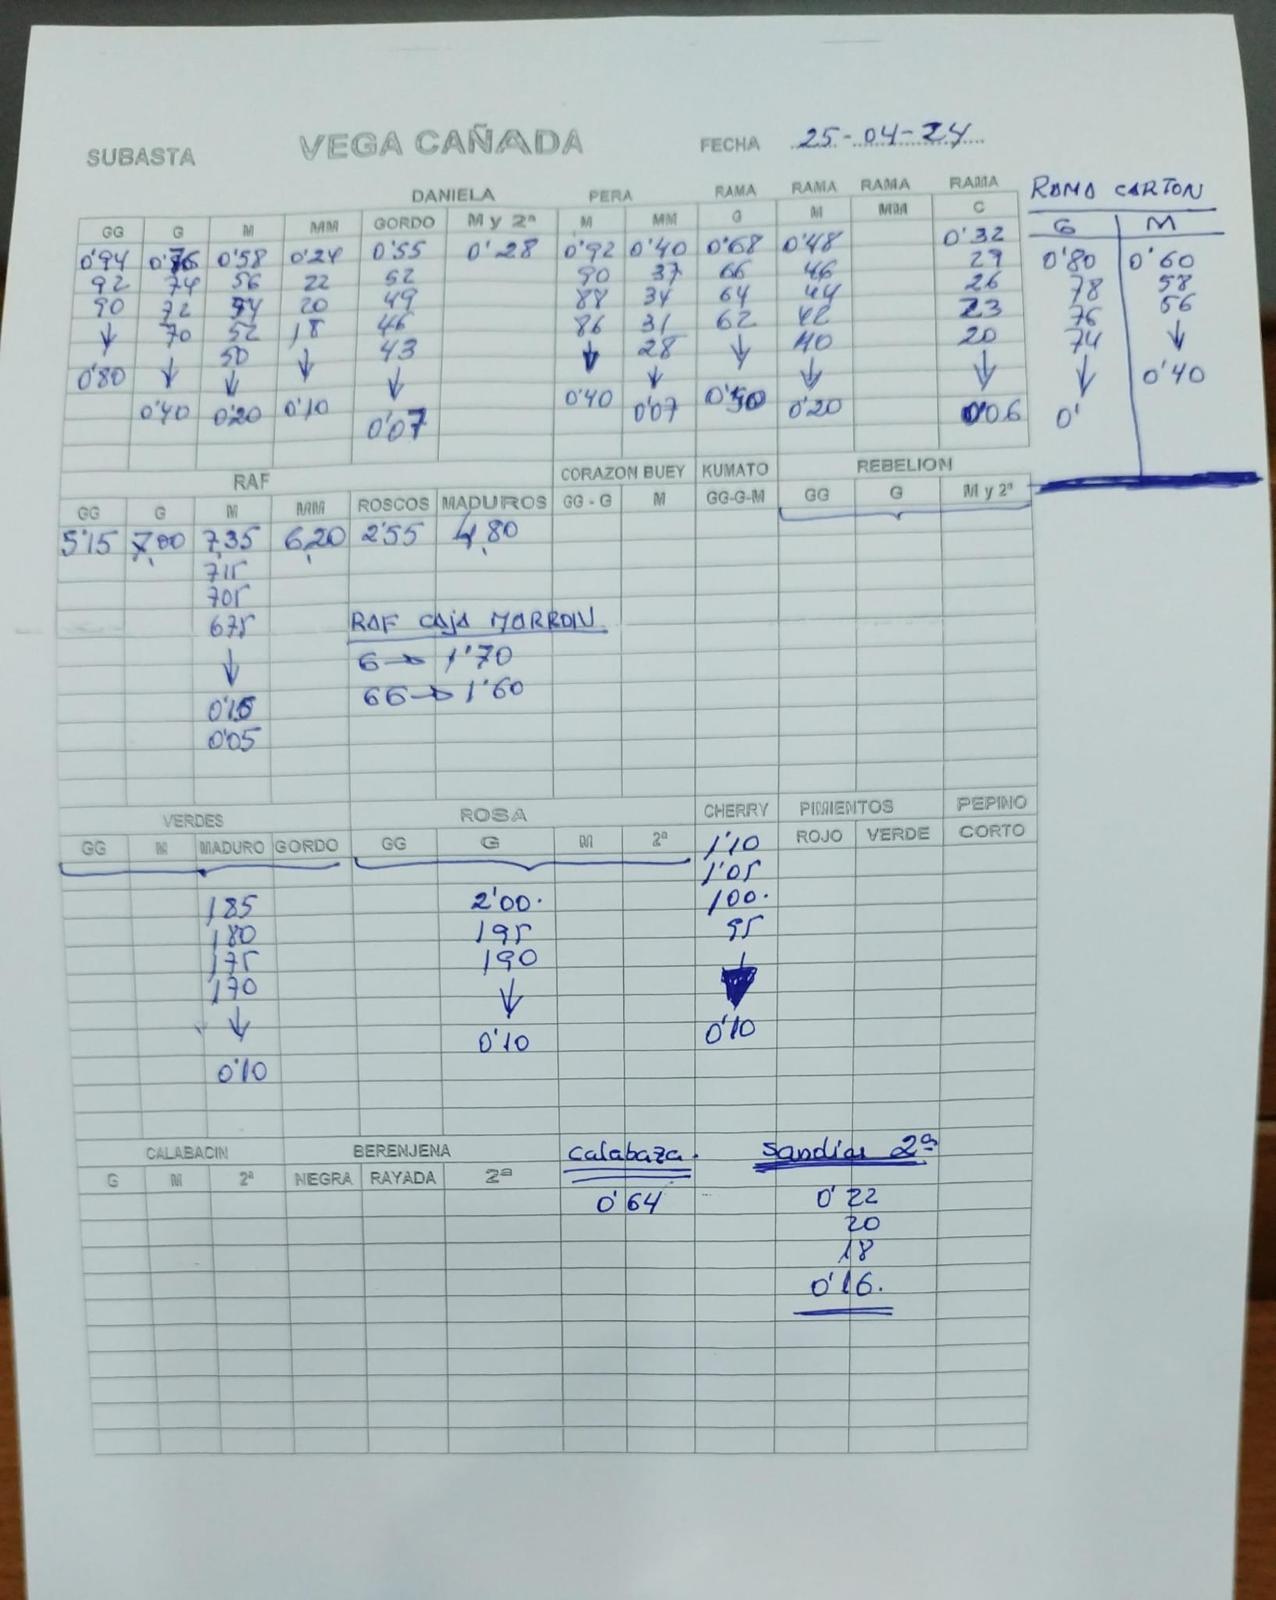 SUBASTA VEGA CAÑADA FECHA 25-04-24
DANIELA PERA RAMA RAMA RAMA RAMA RAMA CARTON
GG G M MM GORDO M y 2ª M MM G M MM C G M
0'94 0'76 0'58 0'24 0'55 0'28 0'92 0'40 0'68 0'48 0'32 0'80 0'60
92 74 56 22 52 90 37 66 46 29 78 58
90 72 54 20 49 88 34 64 44 26 76 56
↓ 70 52 18 46 86 31 62 42 23 74 ↓
0'80 ↓ 50 ↓ 43 ↓ 28 ↓ 40 20 ↓ 0'40
0'40 ↓ 0'10 ↓ 0'40 ↓ 0'50 ↓ ↓ 0'
0'20 0'07 0'07 0'20 0'06
RAF CORAZON BUEY KUMATO REBELION
GG G M MM ROSCOS MADUROS GG - G M GG-G-M GG G M y 2ª
5'15 7,00 7,35 6,20 2'55 4,80
715
705
675
↓
0'15
0'05
RAF CAJA MARRON
G → 1'70
GG → 1'60
VERDES ROSA CHERRY PIMIENTOS PEPINO
GG M MADURO GORDO GG G M 2ª ROJO VERDE CORTO
1'10
1'05
185 2'00. 100.
180 195 95
175 190 ↓
170 ↓ 0'10
↓ 0'10
0'10
CALABACIN BERENJENA Calabaza. Sandias 2ª
G M 2ª NEGRA RAYADA 2ª
0'64 0'22
20
18
0'16.